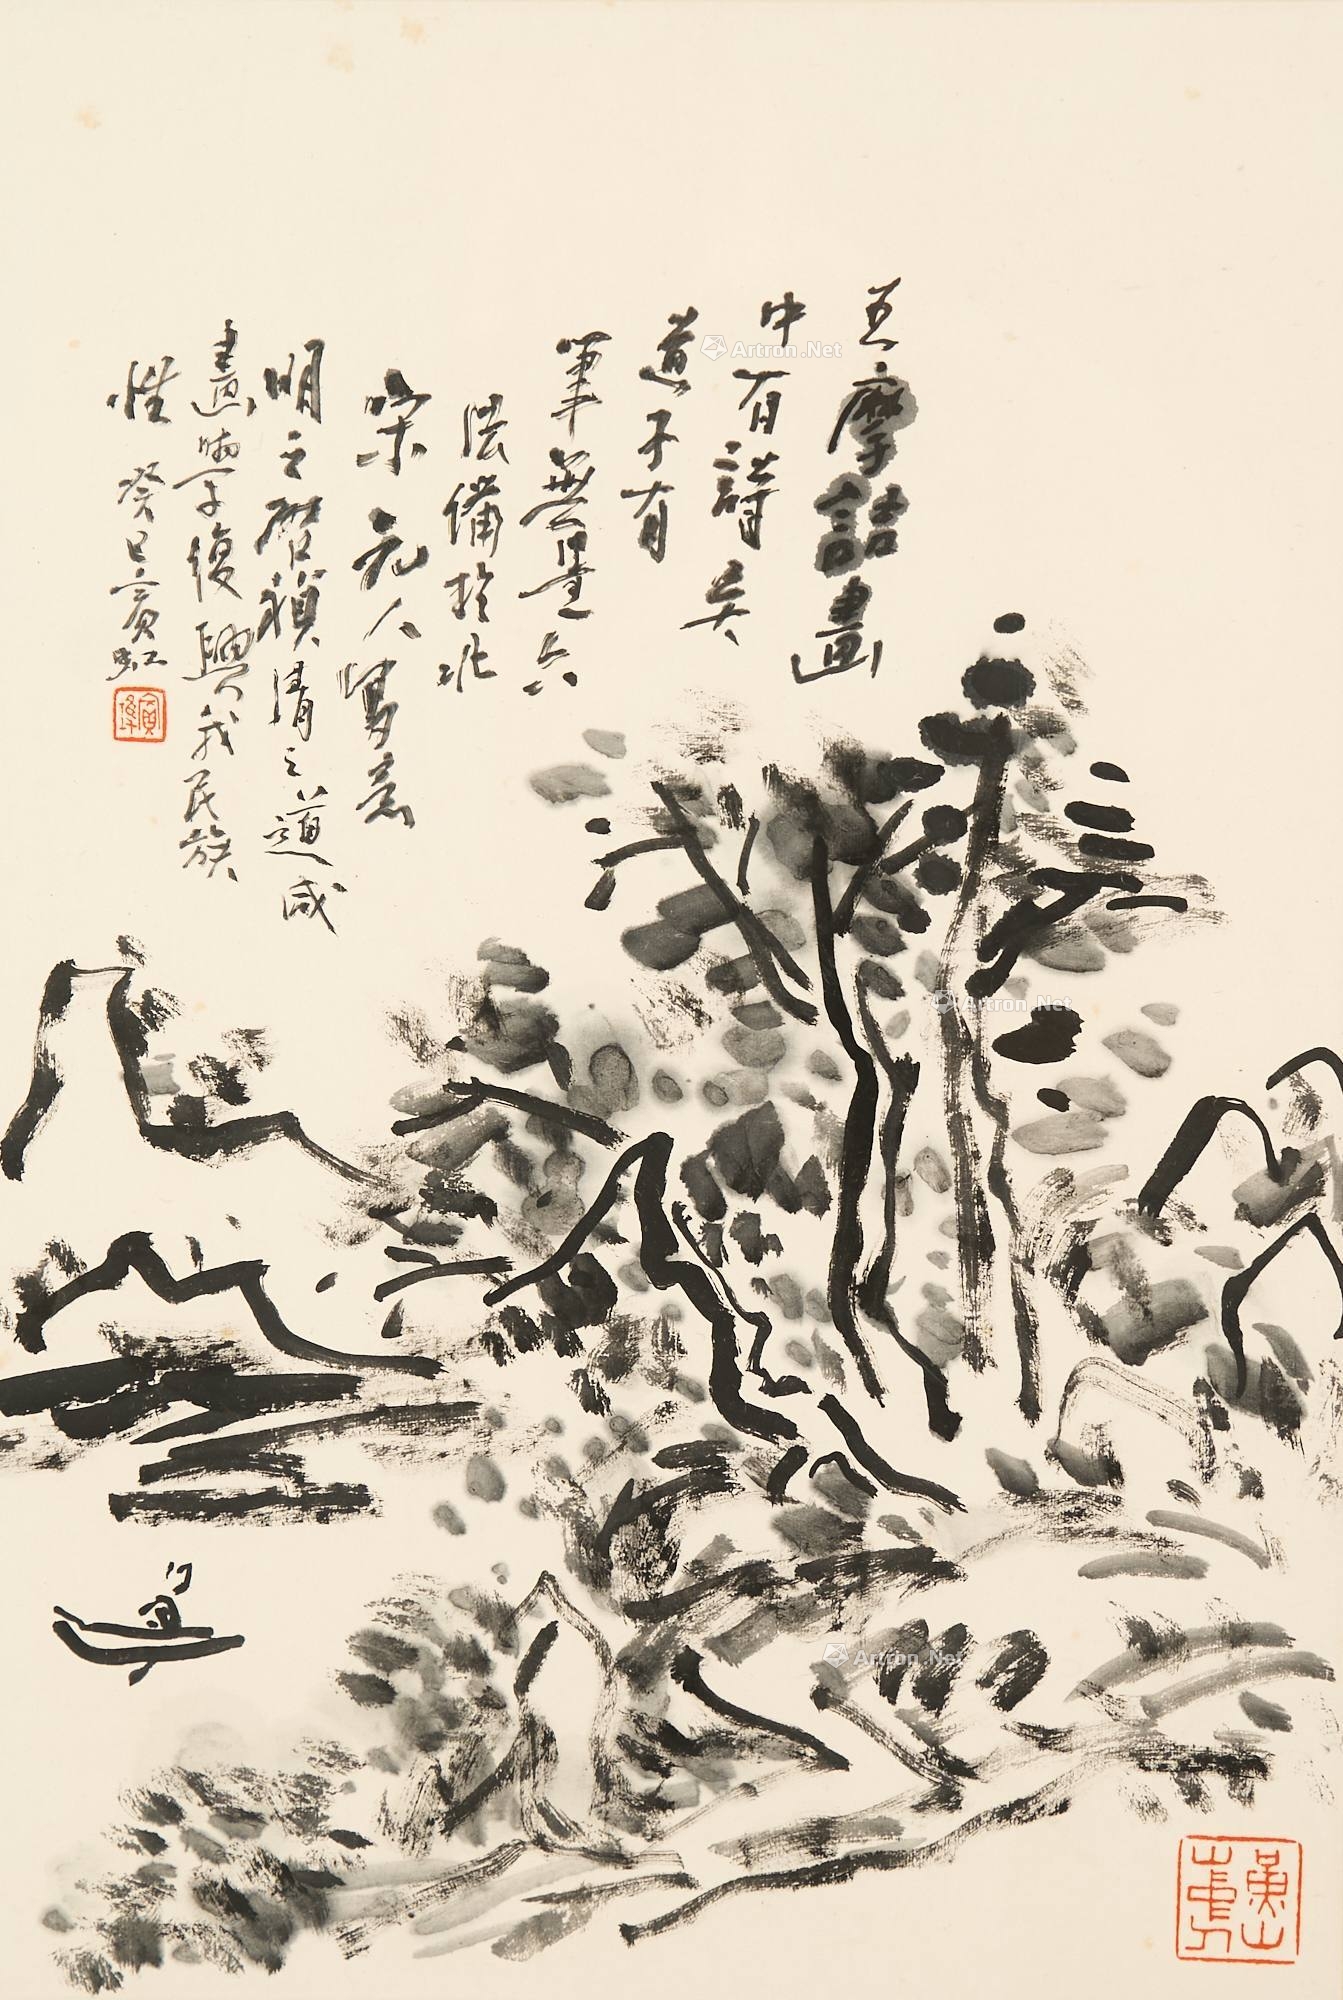 王摩詰畫
中有詩吳
道子有
筆無墨六
法備於北
宋元人寫意
明之啓禎清之道咸
畫學復興我民族
性 癸巳賓虹
賓虹
黃山山中人
Artron.Net
Artron.Net
Artron.Net